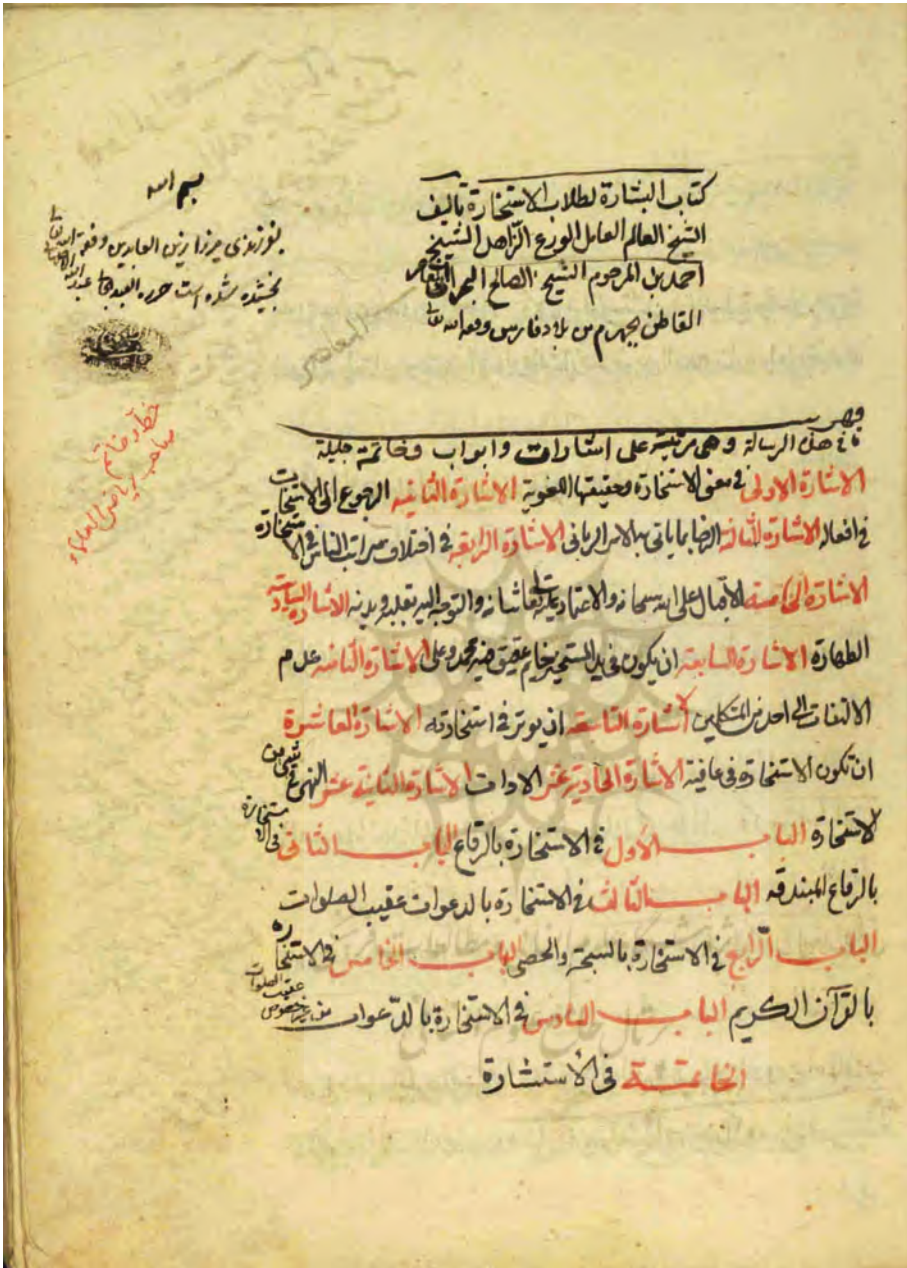 كتاب البشارة لطلاب الاستخارة تاليف
الشيخ العالم العامل الورع الزاهد الشيخ
احمد بن المرحوم الشيخ الصالح البحراني
القاطن بجهرم من بلاد فارس وفقه الله تعالى
المعاصر
بسم الله
بنور زندى ميرزا زين العابدين وفقه الله تعالى
بخشيده شده است حرره العبد عبد الله
خط و خاتم
صاحب رياض العلماء
فهرست
هذه الرسالة وهى مرتبة على اشارات وابواب وخاتمة جليلة
الاشارة الاولى في معنى الاستخارة وحقيقتها اللغوية الاشارة الثانيه الرجوع الى الاستخارت
في افعاله الاشارة الثالثة الرضا بما ياتى به الامر الربانى الاشارة الرابعه في اختلاف مراتب الناس في الاستخارة
الاشارة الخامسة الاقبال على الله سبحانه والاعتماد عليه تعالى شانه والتوجه اليه بقلبه وبدنه الاشارة السادسة
الطهارة الاشارة السابعة ان يكون في يد المستخير خاتم عقيق فيه محمد وعلى الاشارة الثامنه عدم
الالتفات الى احد من المتكلمين الاشارة التاسعه ان يوتر في استخارته الاشارة العاشرة
ان تكون الاستخارة في عافية الاشارة الحادية عشر الادات الاشارة الثانية عشر النهى عن شئ من
الاستخارة الباب الاول في الاستخارة بالرقاع الباب الثانى في الاستخارة
بالرقاع المبندقه الباب الثالث في الاستخارة بالدعوات عقيب الصلوات
الباب الرابع في الاستخارة بالسبحة والحصى الباب الخامس في الاستخارة
بالقرآن الكريم الباب السادس في الاستخارة بالدعوات من غير خصوص عقيب الصلوات
الخاتمة في الاستشارة